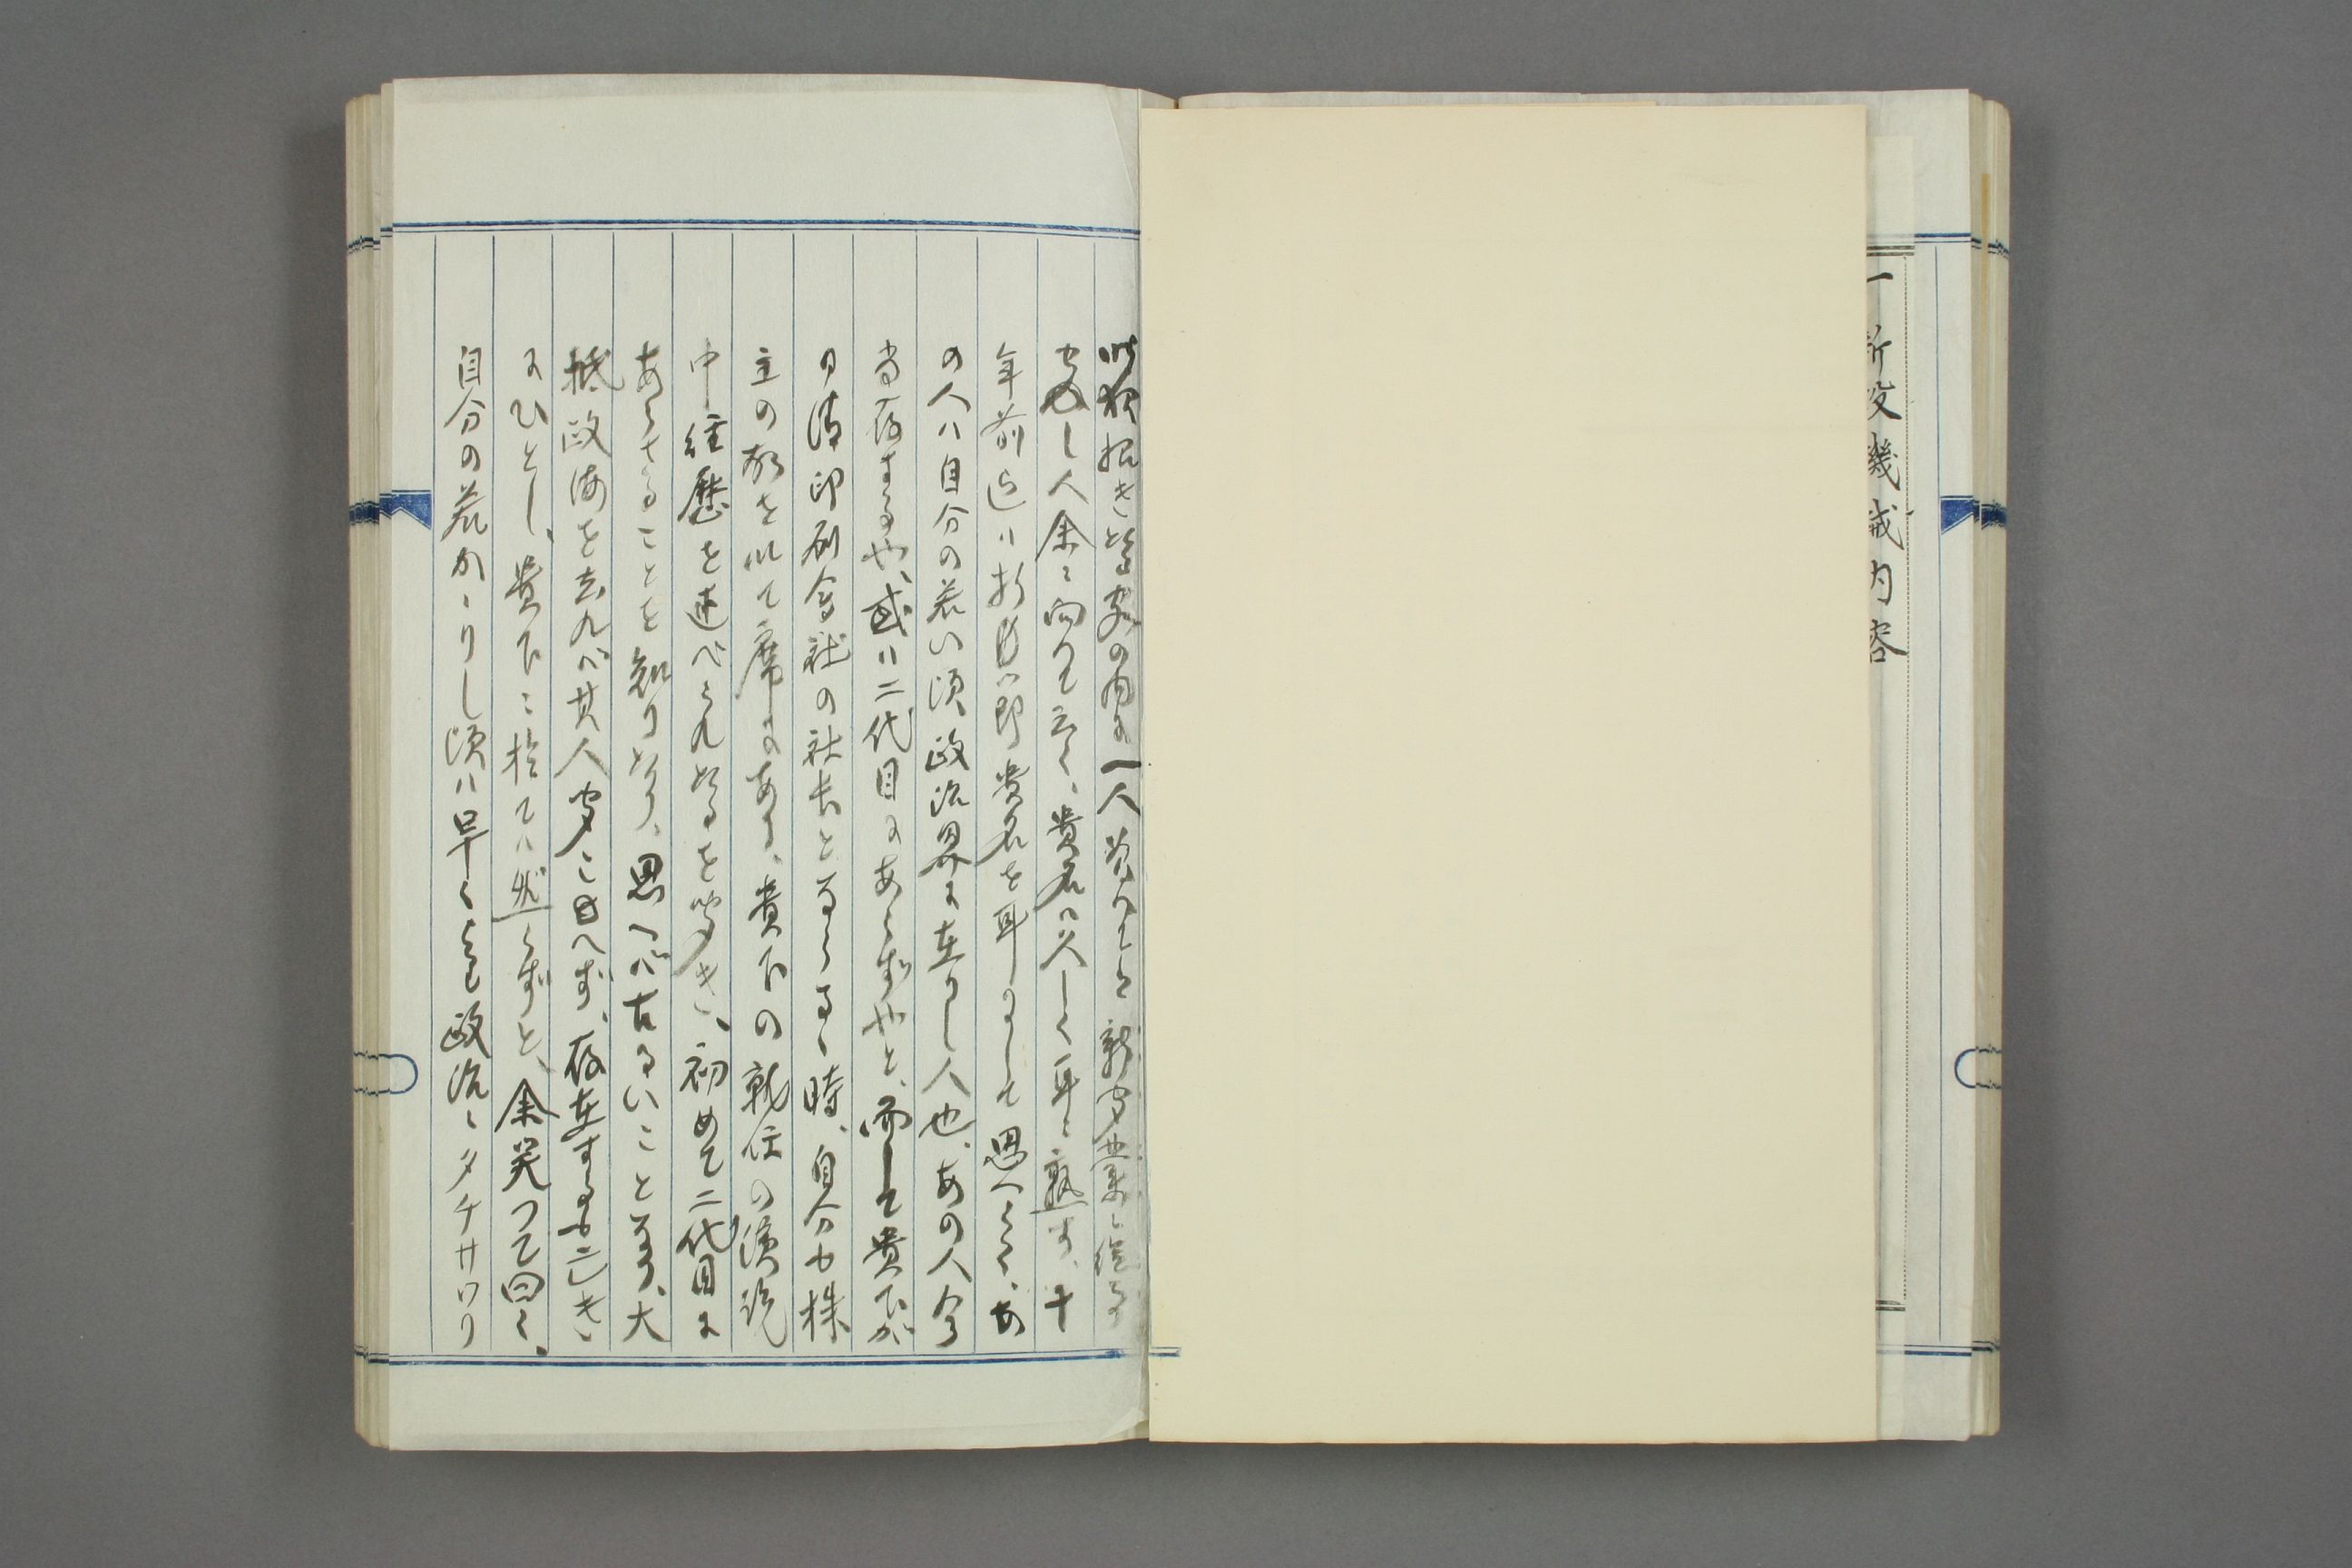 一 新設機械内容
此夜招き皆客の内に一人曽つて新聞業に従事
せめし人余に向つて云く、貴名ハ久しく耳に熟す、十
年前迄ハ折々即貴名を耳にして思へらく、あ
の人ハ自分の若い頃政治界に在りし人也、あの人今
尚存するや、或ハ二代目にあらずやと、而して貴下が
日清印刷会社の社長とならるゝ時、自分も株
主の故を以て席にあり、貴下の就任の演説
中経歴を述べられたるを聞き、初めて二代目に
あらさることを知りたり、思へバ古るいことなり、大
抵政海を去れバ其人聞こへず、存在するも亡き
にひとし、貴下に於てハ然らずと、余笑つて曰く、
自分の若かりし頃ハ早くも政治ニタチサワリ